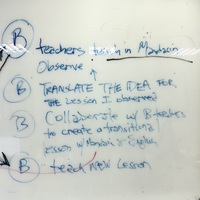 B teachers teach in Mandarin
Observe
B TRANSLATE THE IDEA FOR
the Lesson I observed
B Collaborate w/ B teacher
to create a transitional
lesson w/ Mandarin & English
B teach New Lesson